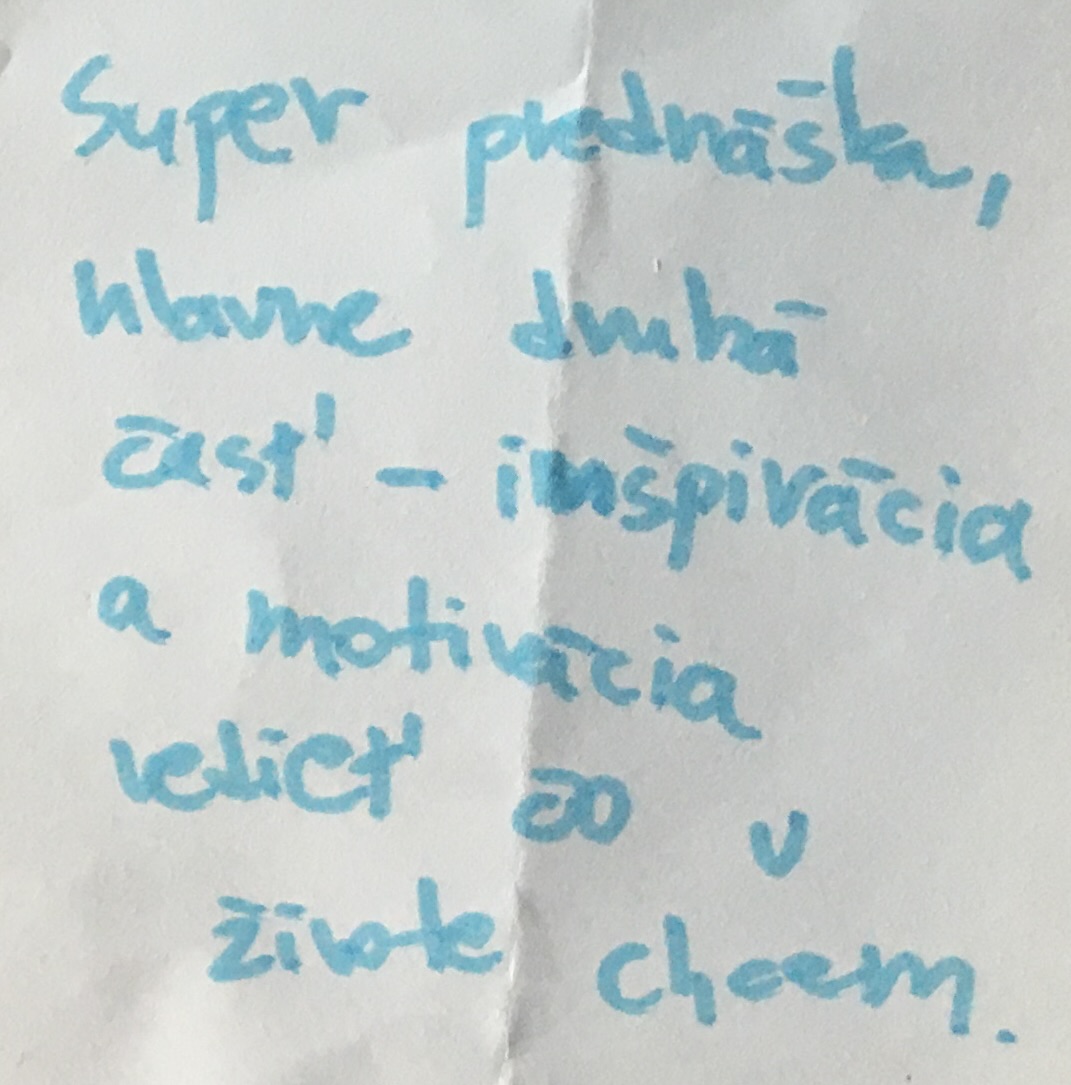 Super prednáška,
hlavne druhá
časť - inšpirácia
a motivácia
vedieť čo v
živote chcem.